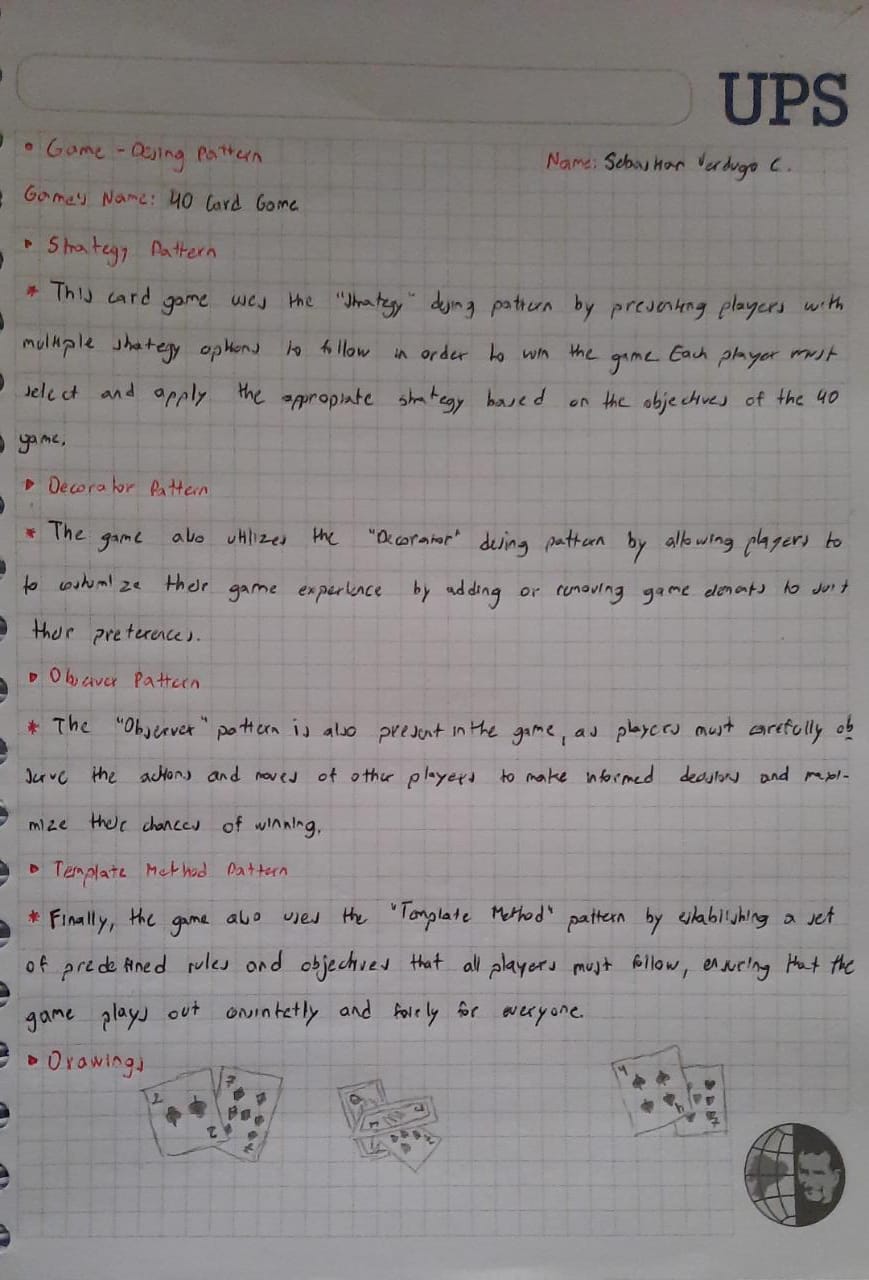 UPS
• Game - Desing Pattern
Name: Sebastian Verdugo C.
Game's Name: 40 Card Game
Strategy Pattern
* This card game uses the "strategy" desing pattern by presenting players with
multiple strategy options to follow in order to win the game Each player must
select and apply the appropiate strategy based on the objectives of the 40
game.
Decorator Pattern
* The game also utilizes the "Decorator" desing pattern by allowing players to
to costumize their game experience by adding or removing game elements to suit
their preferences.
Observer Pattern
* The "Observer" pattern is also present in the game, as players must carefully ob
serve the actions and moves of other players to make informed decisions and maxi-
mize their chances of winning.
Template Method Pattern
* Finally, the game also uses the "Template Method" pattern by establishing a set
of predefined rules and objectives that all players must follow, ensuring that the
game plays out and fairly for everyone.
Drawings
2 7 4
2 4